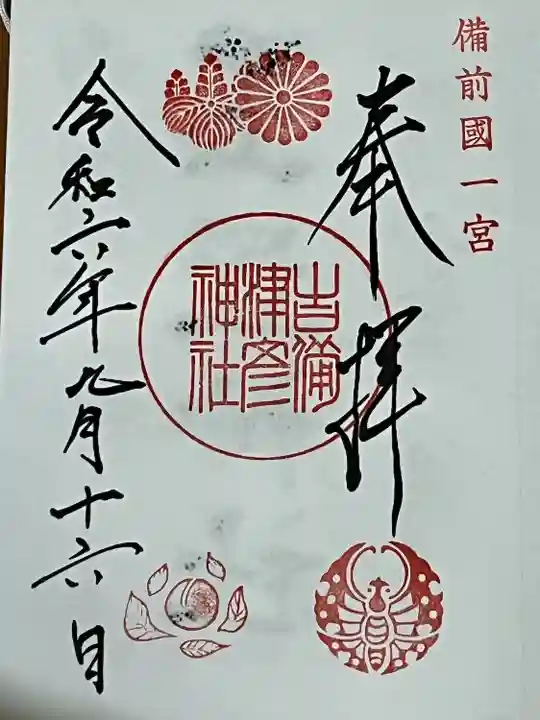 備前國一宮
奉拝
吉備
津彦
神社
令和六年九月十六日